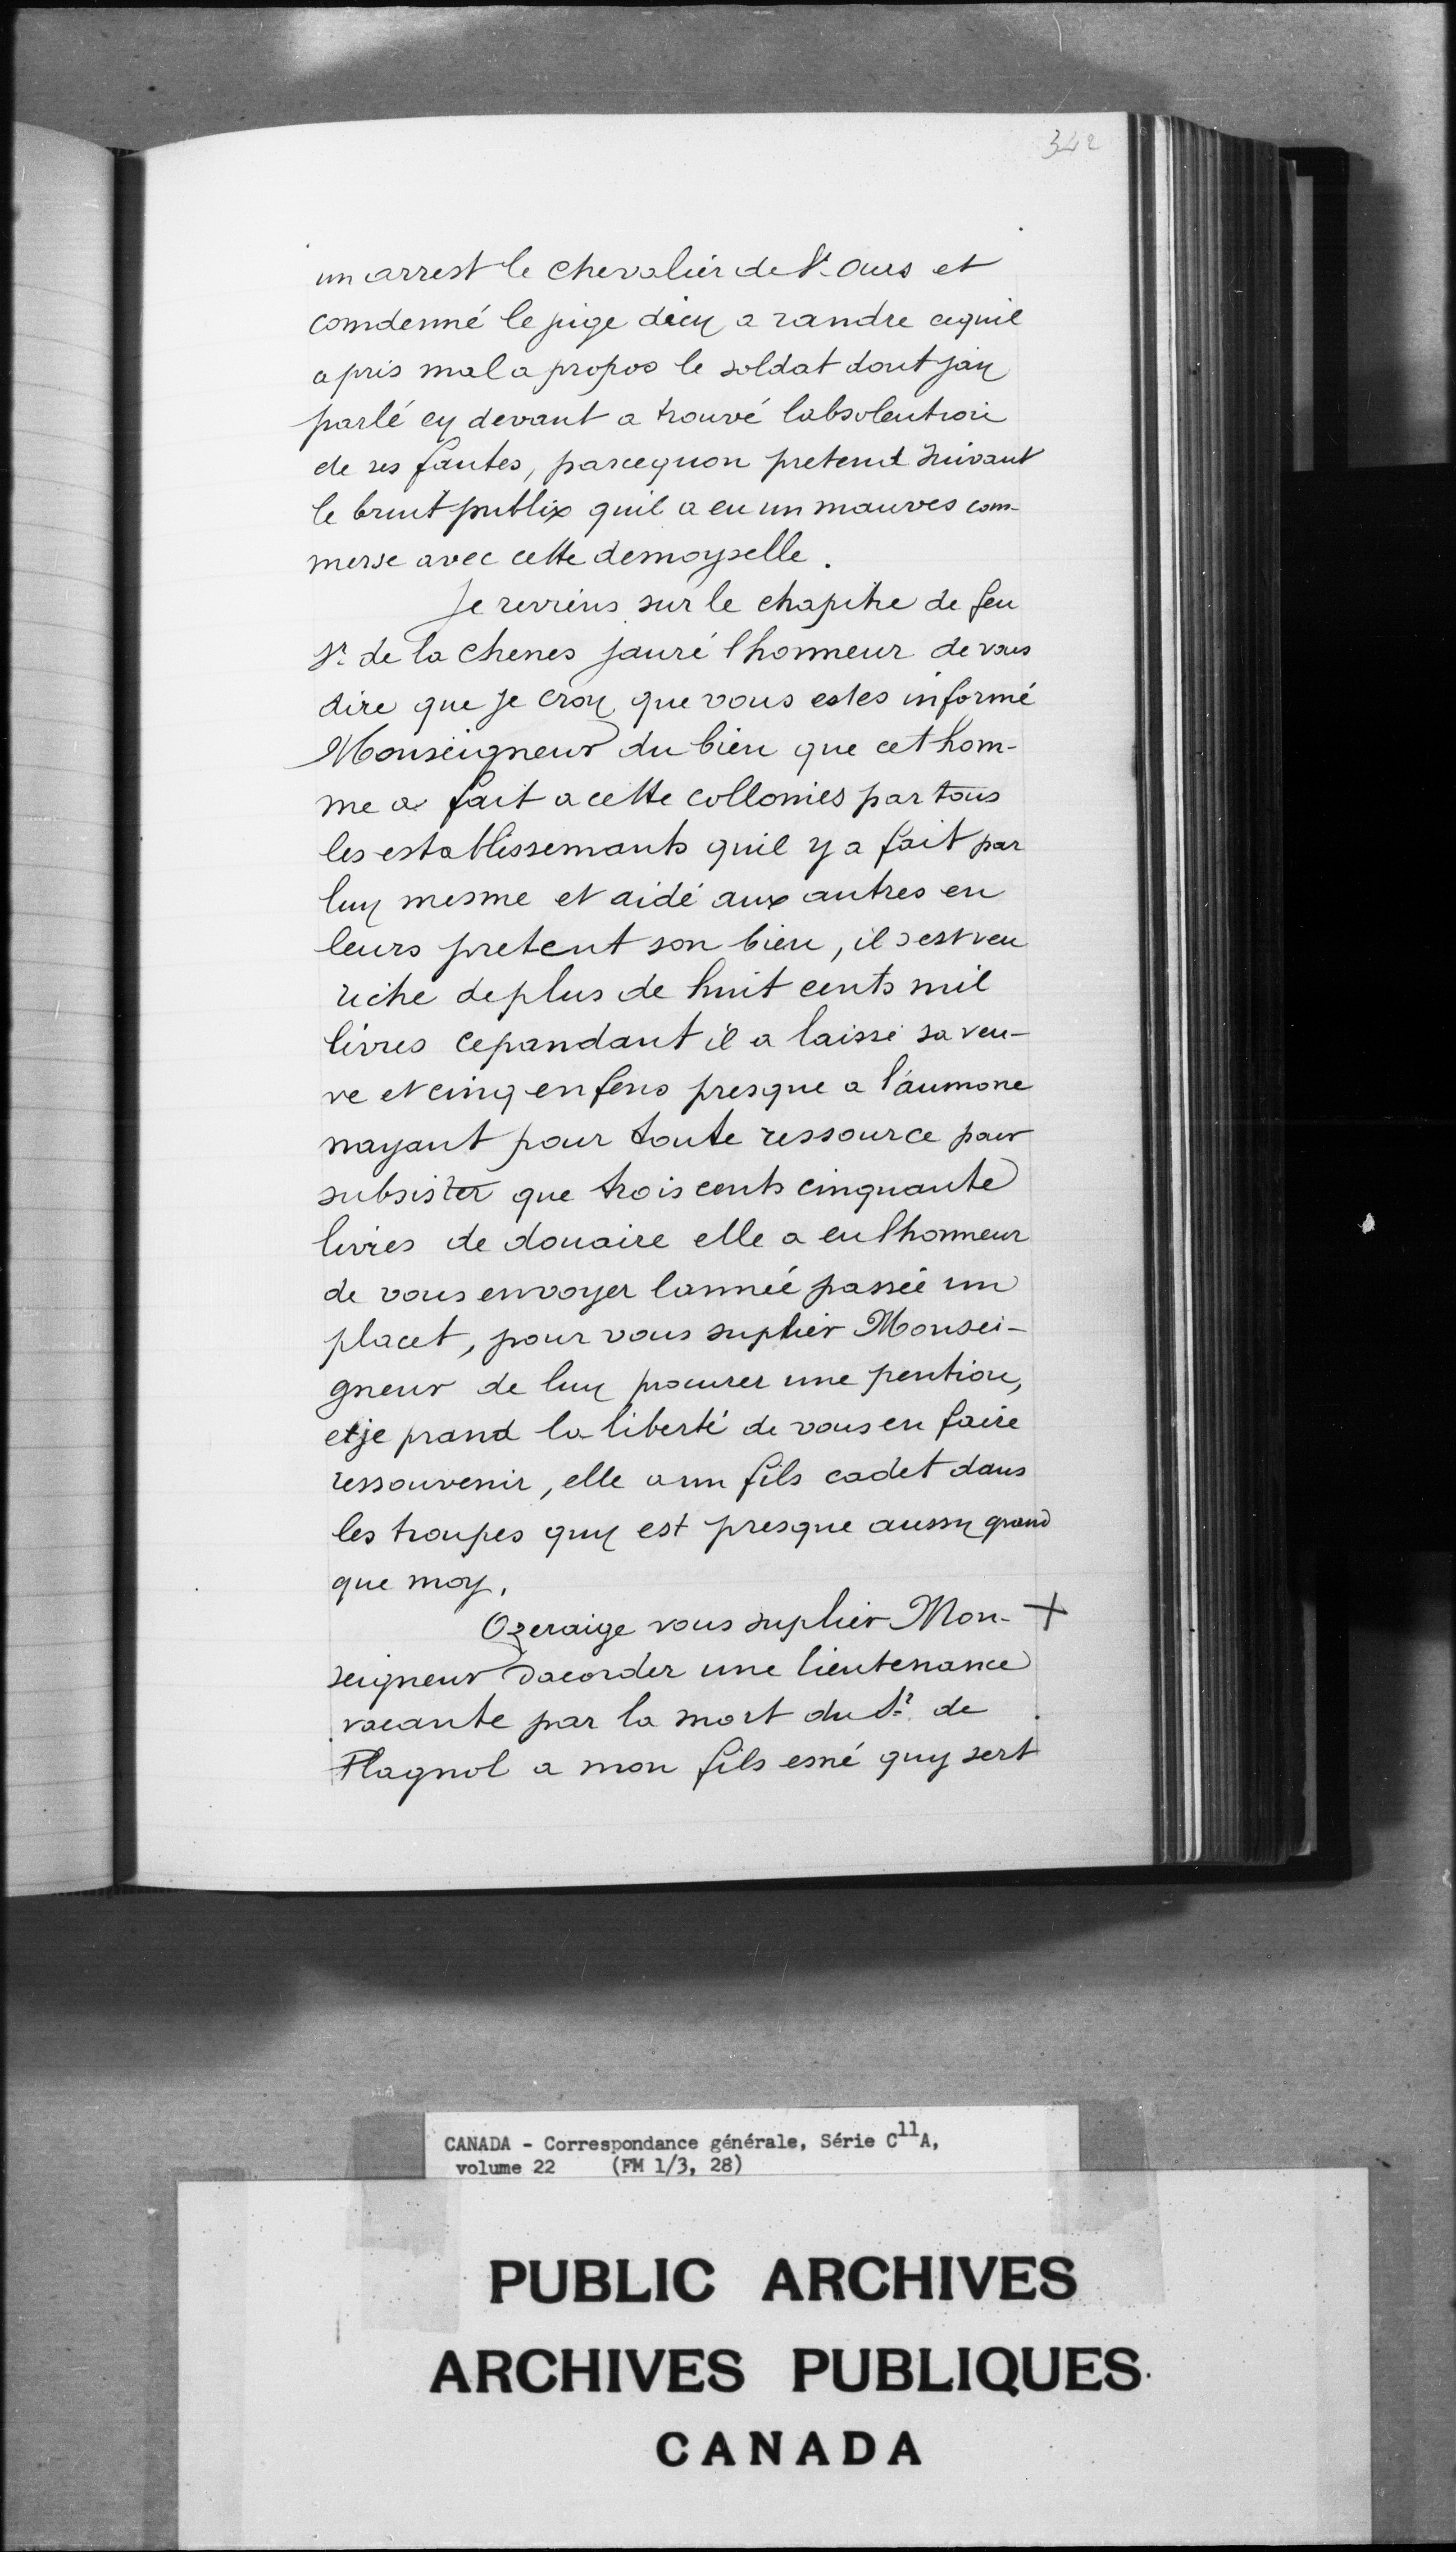 342
un arrest le chevalier de St. Ours et
comdenné le juge dicy a randre cequil
a pris mal a propos le soldat dont jay
parlé cy devant a trouvé labsolution
de ses fautes, parcequon pretend suivant
le bruit publix quil a eu un mauves com-
merse avec cette demoyselle.
Je reviens sur le chapitre de feu
Sr. de la chenes jauré lhonneur de vous
dire que je croy que vous estes informé
Monseigneur du bien que cet hom-
me a fait a cette collonies par tous
les establissemants quil y a fait par
luy mesme et aidé aux autres en
leurs pretent son bien, il sest veu
riche deplus de huit cents mil
livres cepandant il a laissé sa veu-
ve et cinq enfens presque a l'aumone
nayant pour toute ressource pour
subsister que trois cents cinquante
livres de douaire elle a eu lhonneur
de vous envoyer lanneé passeé un
placet, pour vous suplier Monsei-
gneur de luy procurer une pention,
et je prand la liberté de vous en faire
ressouvenir, elle a un fils cadet dans
les troupes quy est presque aussy grand
que moy.
Ozeraige vous suplier Mon- +
seigneur dacorder une lieutenance
vacante par la mort du Sr. de
Plagnol a mon fils esné quy sert
CANADA - Correspondance générale, Série C11A,
volume 22 (FM 1/3, 28)
PUBLIC ARCHIVES
ARCHIVES PUBLIQUES
CANADA